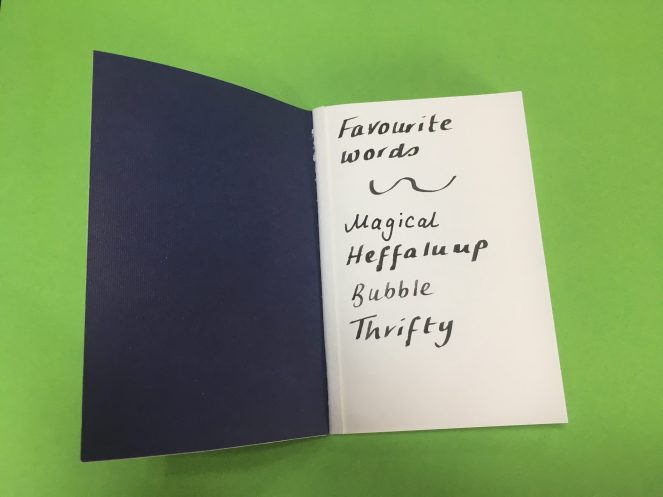 Favourite
words
Magical
Heffaluup
Bubble
Thrifty